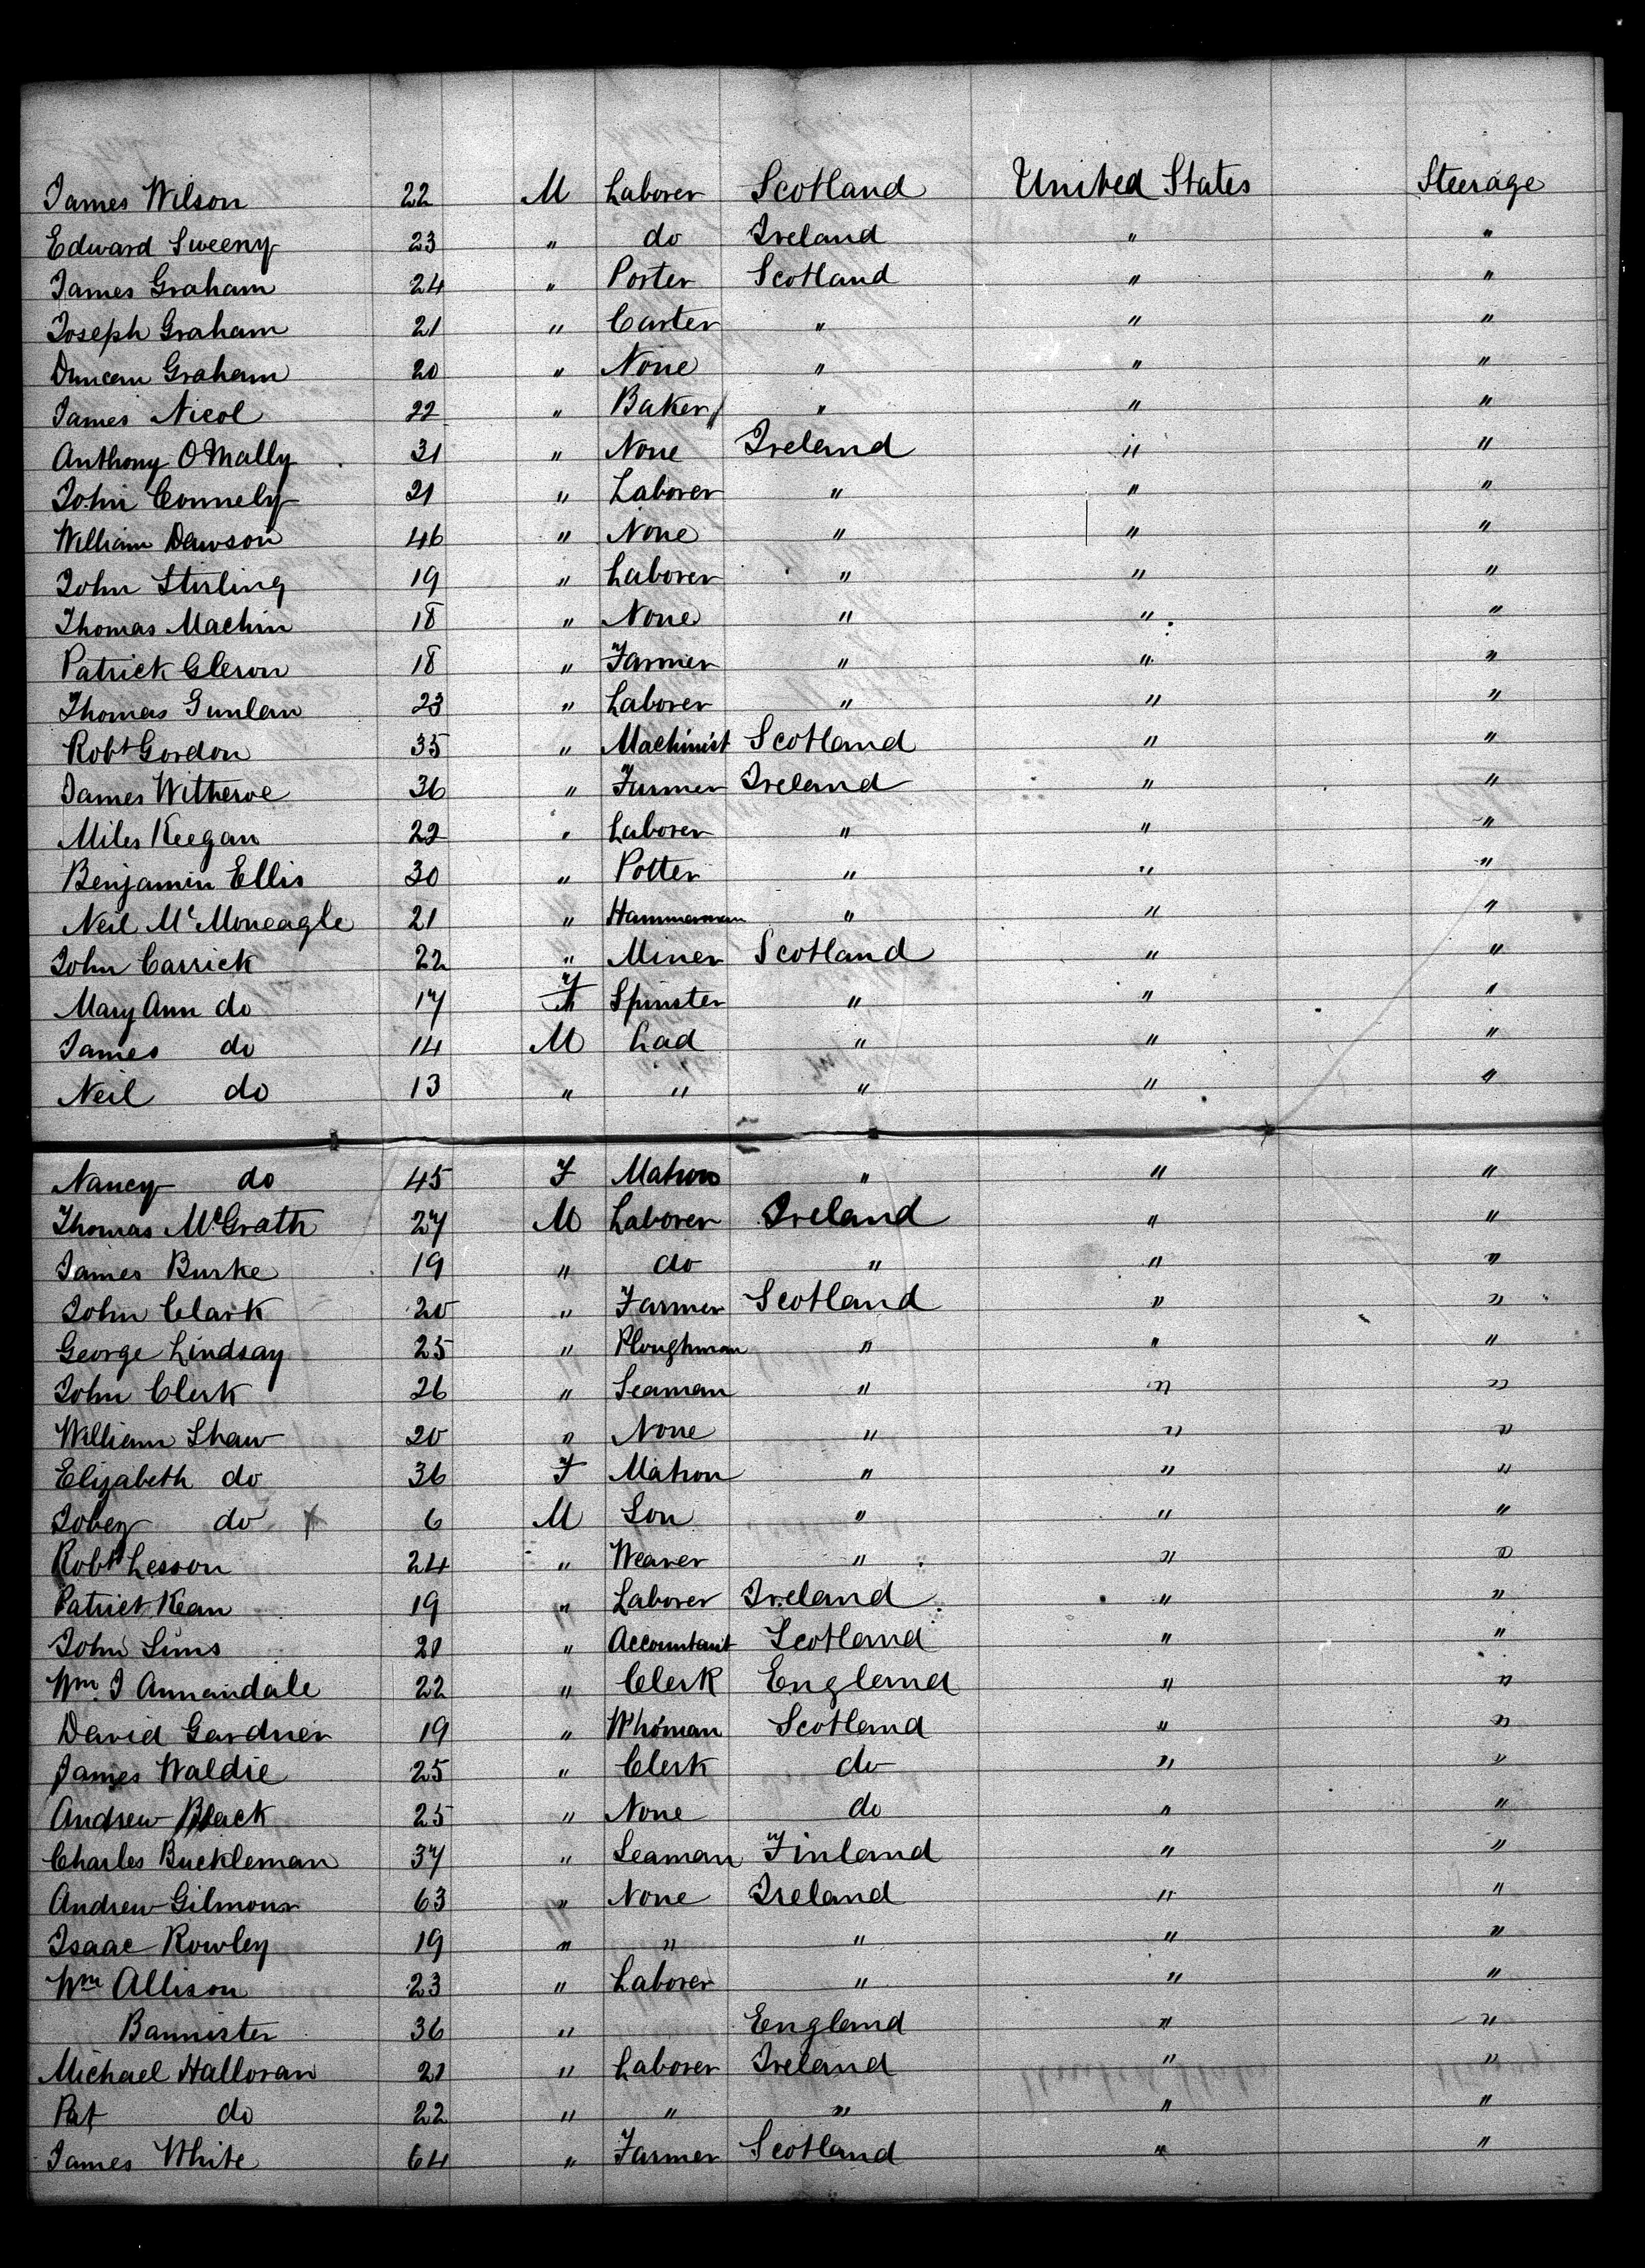 James Wilson 22 M Laborer Scotland United States Steerage
Edward Sweeny 23 " do Ireland " "
James Graham 24 " Porter Scotland " "
Joseph Graham 21 " Carter " " "
Duncan Graham 20 " None " " "
James Nicol 22 " Baker " " "
Anthony O'Mally 31 " None Ireland " "
John Connely 21 " Laborer " " "
William Dawson 46 " None " " "
John Stirling 19 " Laborer " " "
Thomas Machin 18 " None " " "
Patrick Gleron 18 " Farmer " " "
Thomas Gunlan 23 " Laborer " " "
Robt Gordon 35 " Machinist Scotland " "
James Witheroe 36 " Farmer Ireland " "
Miles Keegan 22 " Laborer " " "
Benjamin Ellis 30 " Potter " " "
Neil McMoneagle 21 " Hammerman " " "
John Carrick 22 " Miner Scotland " "
Mary Ann do 17 F Spinster " " "
James do 14 M Lad " " "
Neil do 13 " " " " "
Nancy do 45 F Matron " " "
Thomas McGrath 27 M Laborer Ireland " "
James Burke 19 " do " " "
John Clark 20 " Farmer Scotland " "
George Lindsay 25 " Ploughman " " "
John Clerk 26 " Seaman " " "
William Shaw 20 " None " " "
Elizabeth do 36 F Matron " " "
Tobey do x 6 M Son " " "
Robt Lesson 24 " Weaver " " "
Patrick Kean 19 " Laborer Ireland " "
John Sims 21 " Accountant Scotland " "
Wm J Annandale 22 " Clerk England " "
David Gardner 19 " W'hóman Scotland " "
James Waldie 25 " Clerk do " "
Andrew Black 25 " None do " "
Charles Buckleman 37 " Seaman Finland " "
Andrew Gilmour 63 " None Ireland " "
Isaac Rowley 19 " " " " "
Wm Allison 23 " Laborer " " "
Bannister 36 " England " "
Michael Halloran 21 " Laborer Ireland " "
Pat do 22 " " " " "
James White 64 " Farmer Scotland " "